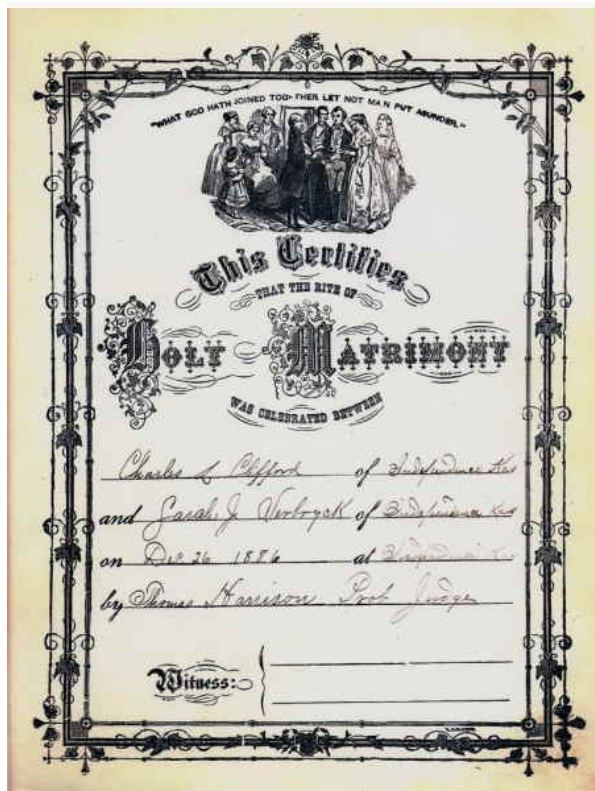 "WHAT GOD HATH JOINED TOGETHER LET NOT MAN PUT ASUNDER."
This Certifies
THAT THE RITE OF
HOLY MATRIMONY
WAS CELEBRATED BETWEEN
Charles L Clifford of Independence Kas
and Sarah J Verbryck of Independence Kas
on Dec 26 1886 at Independence Kas
by Thomas Harrison Prob Judge
Witness: